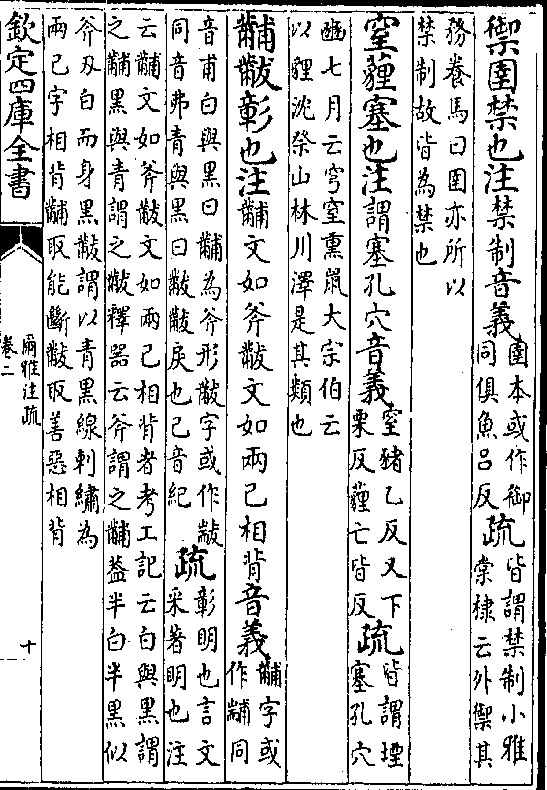 禦圉禁也注禁制音義圉本或作御
同俱魚呂反疏皆謂禁制小雅
棠棣云外禦其
務養馬曰圉亦所以
禁制故皆為禁也
窒薶塞也注謂塞孔穴音義窒豬乙反又下
栗反薶亡皆反疏皆謂堙
塞孔穴
豳七月云穹窒熏鼠大宗伯云
以貍沈祭山林川澤是其類也
黼黻彰也注黼文如斧黻文如兩己相背音義黼字或
作䩉同
音甫白與黑曰黼為斧形黻字或作黻
同音弗青與黑曰黻黻戾也己音紀疏彰明也言文
采著明也注
云黼文如斧黻文如兩己相背者考工記云白與黑謂
之黼黑與青謂之黻釋器云斧謂之黼葢半白半黑似
斧刃白而身黑黻謂以青黑線刺繡為
兩己字相背黼取能斷黻取善惡相背
欽定四庫全書
爾雅注疏
卷二
十